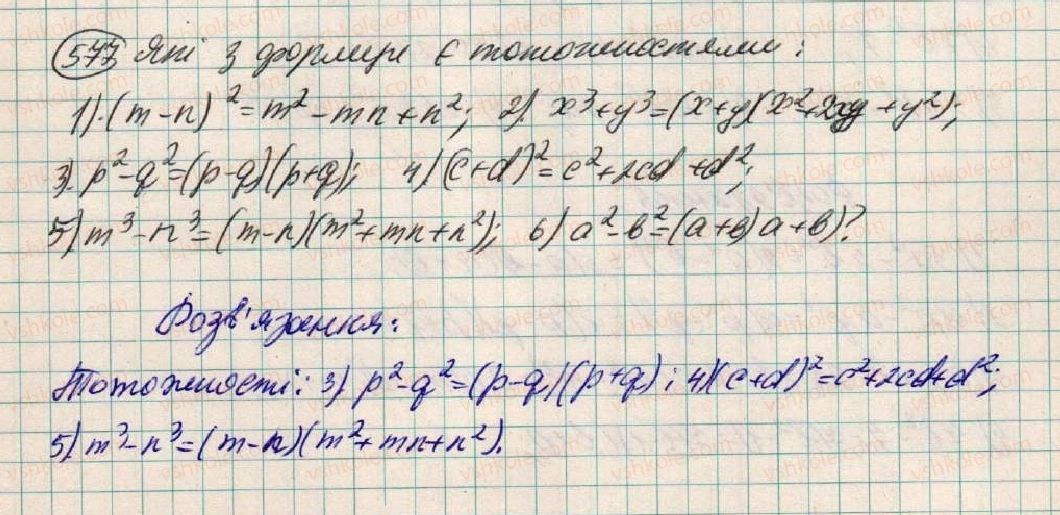 577 Які з формул є тотожностями:
1) (m-n)²=m²-mn+n²; 2) x³+y³=(x+y)(x²+2xy+y²);
3) p²-q²=(p-q)(p+q); 4) (c+d)²=c²+2cd+d²;
5) m³-n³=(m-n)(m²+mn+n²); 6) a²-в²=(a+в)a+в)?
Розв'язання:
Тотожності: 3) p²-q²=(p-q)(p+q); 4)(c+d)²=c²+2cd+d²;
5) m³-n³=(m-n)(m²+mn+n²).